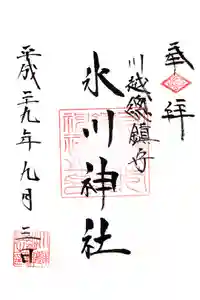 奉拝
川越総鎮守
氷川神社
平成二九年九月三日